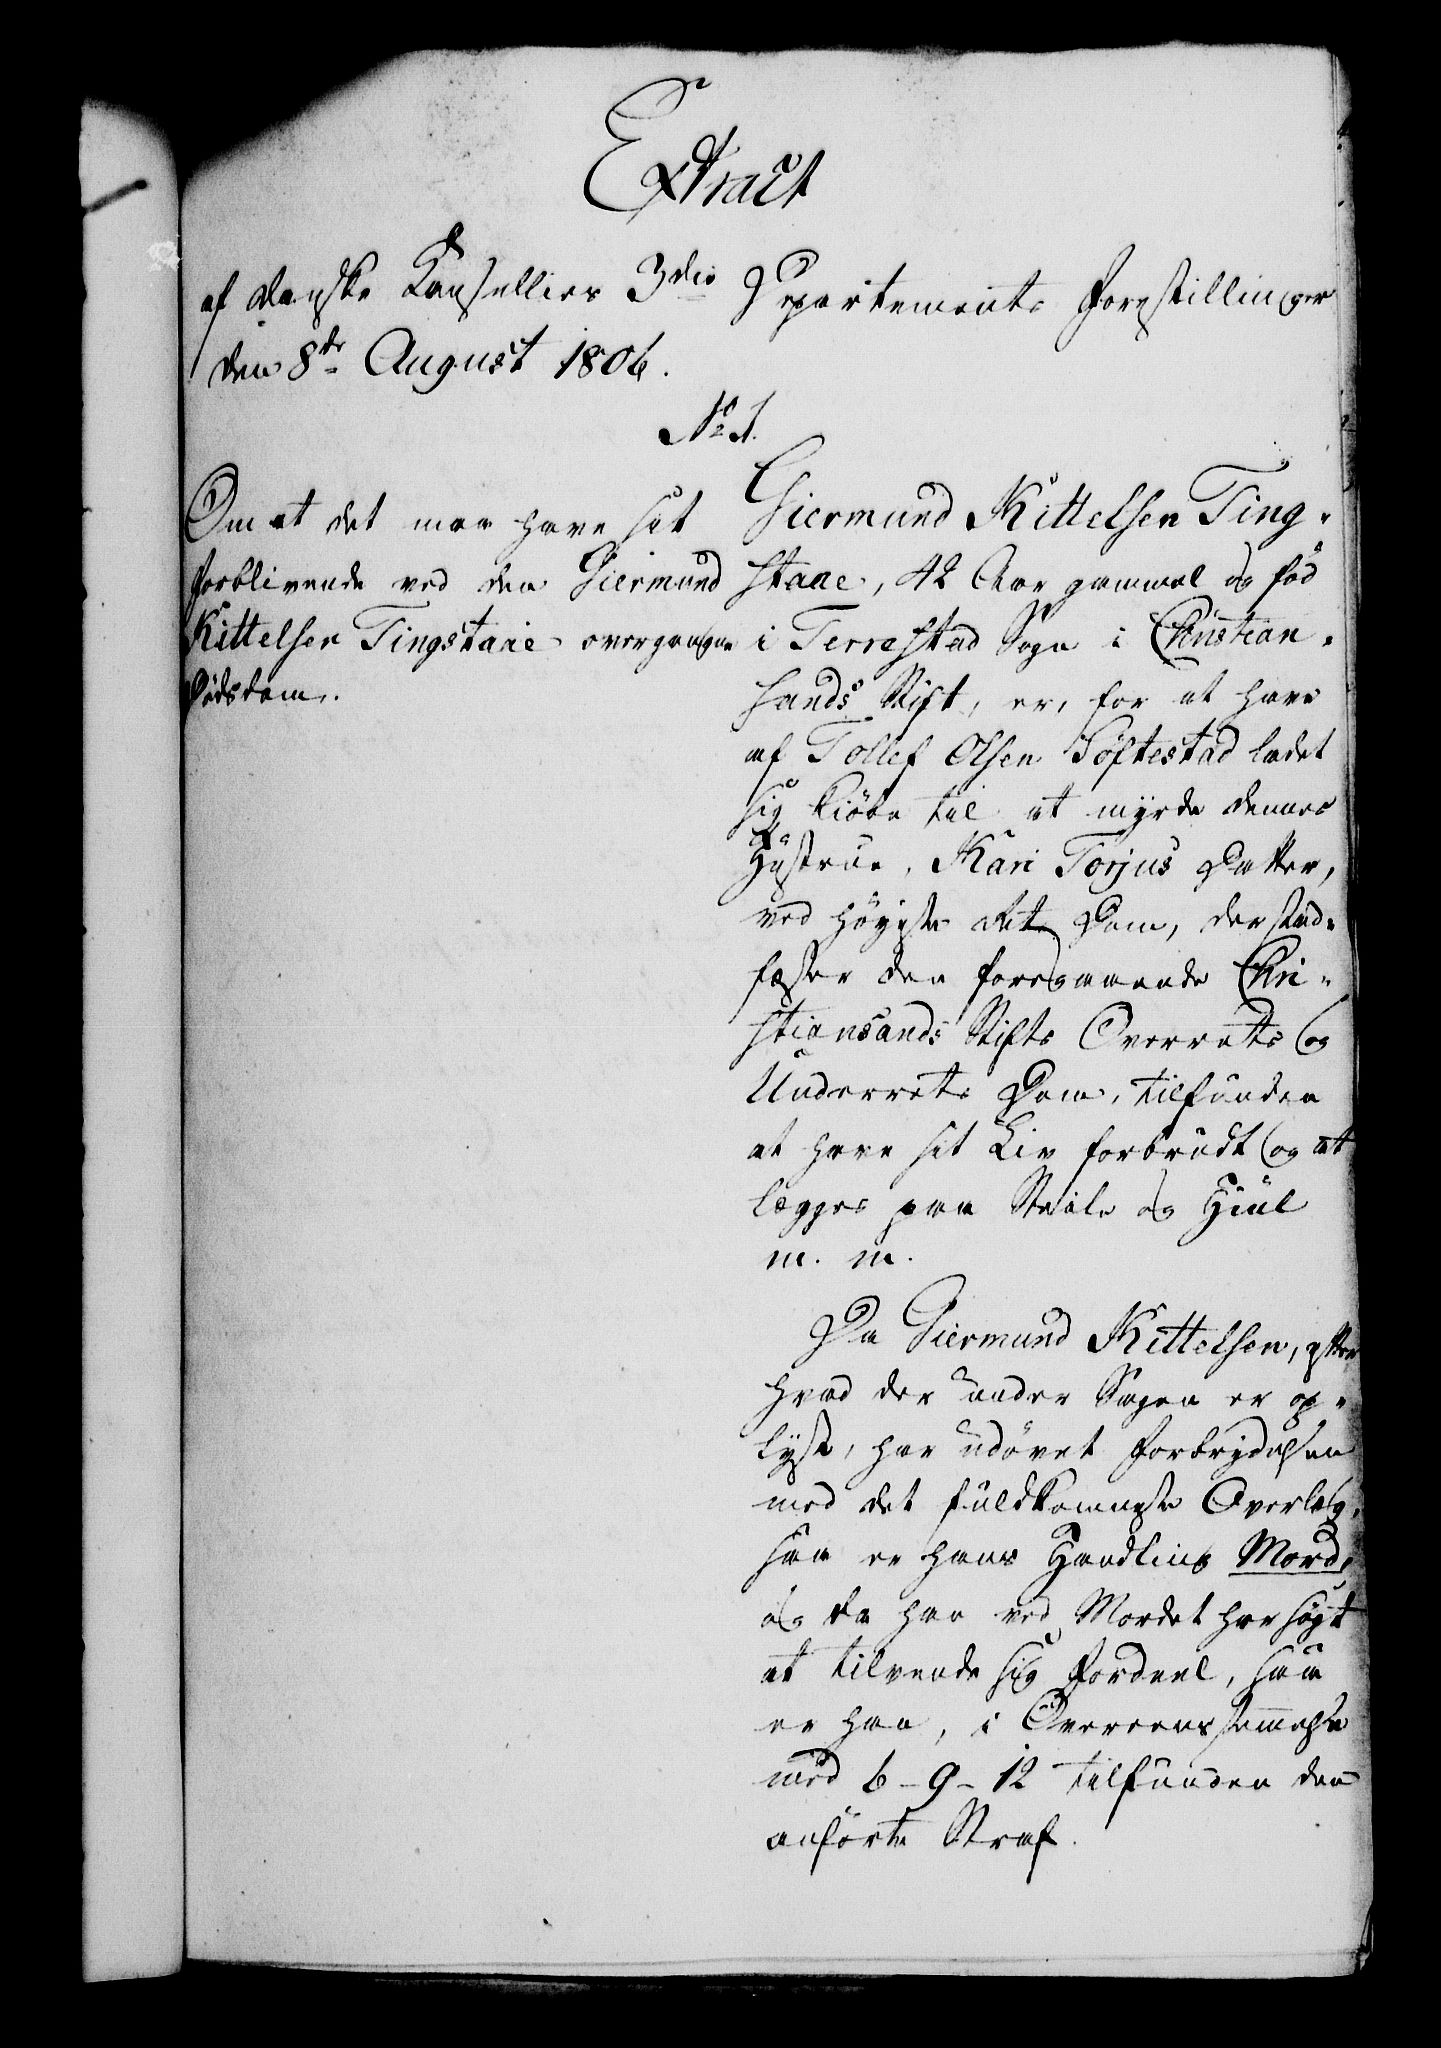 Extract
af Danske Cancelliets 3die Departements Forestillinger
den 8de August 1806.
No 1.
Om at det maa have sit
forblivende ved den Giermund
Kittelsen Tingstaae overgangne
Dødsdom.
Giermund Kittelsen Ting-
staae, 42 Aar gammel og fød
i Terrestad Sogn i Christian-
sands Stift, er, for at have
af Tollef Olsen Töftestad ladet
sig kiöbe til at myrde dennes
Hustrue, Kari Torjus Datter,
ved Höyeste Rets Dom, der stad-
fæster den foregaaende Chri-
stiansands Stifts Overrets og
Underrets Dom, tilfunden
at have sit Liv forbrudt og at
lægges paa Steile og Hiul
m. m.
Da Giermund Kittelsen, efter
hvad der under Sagen er op-
lyst, har udövet Forbrydelsen
med det fuldkomneste Overlæg,
saa er hans Handling Mord,
og da han ved Mordet har søgt
at tilvende sig Fordeel, saa
er han, i Overeensstemmelse
med 6-9-12 tilfunden den
anförte Straf.